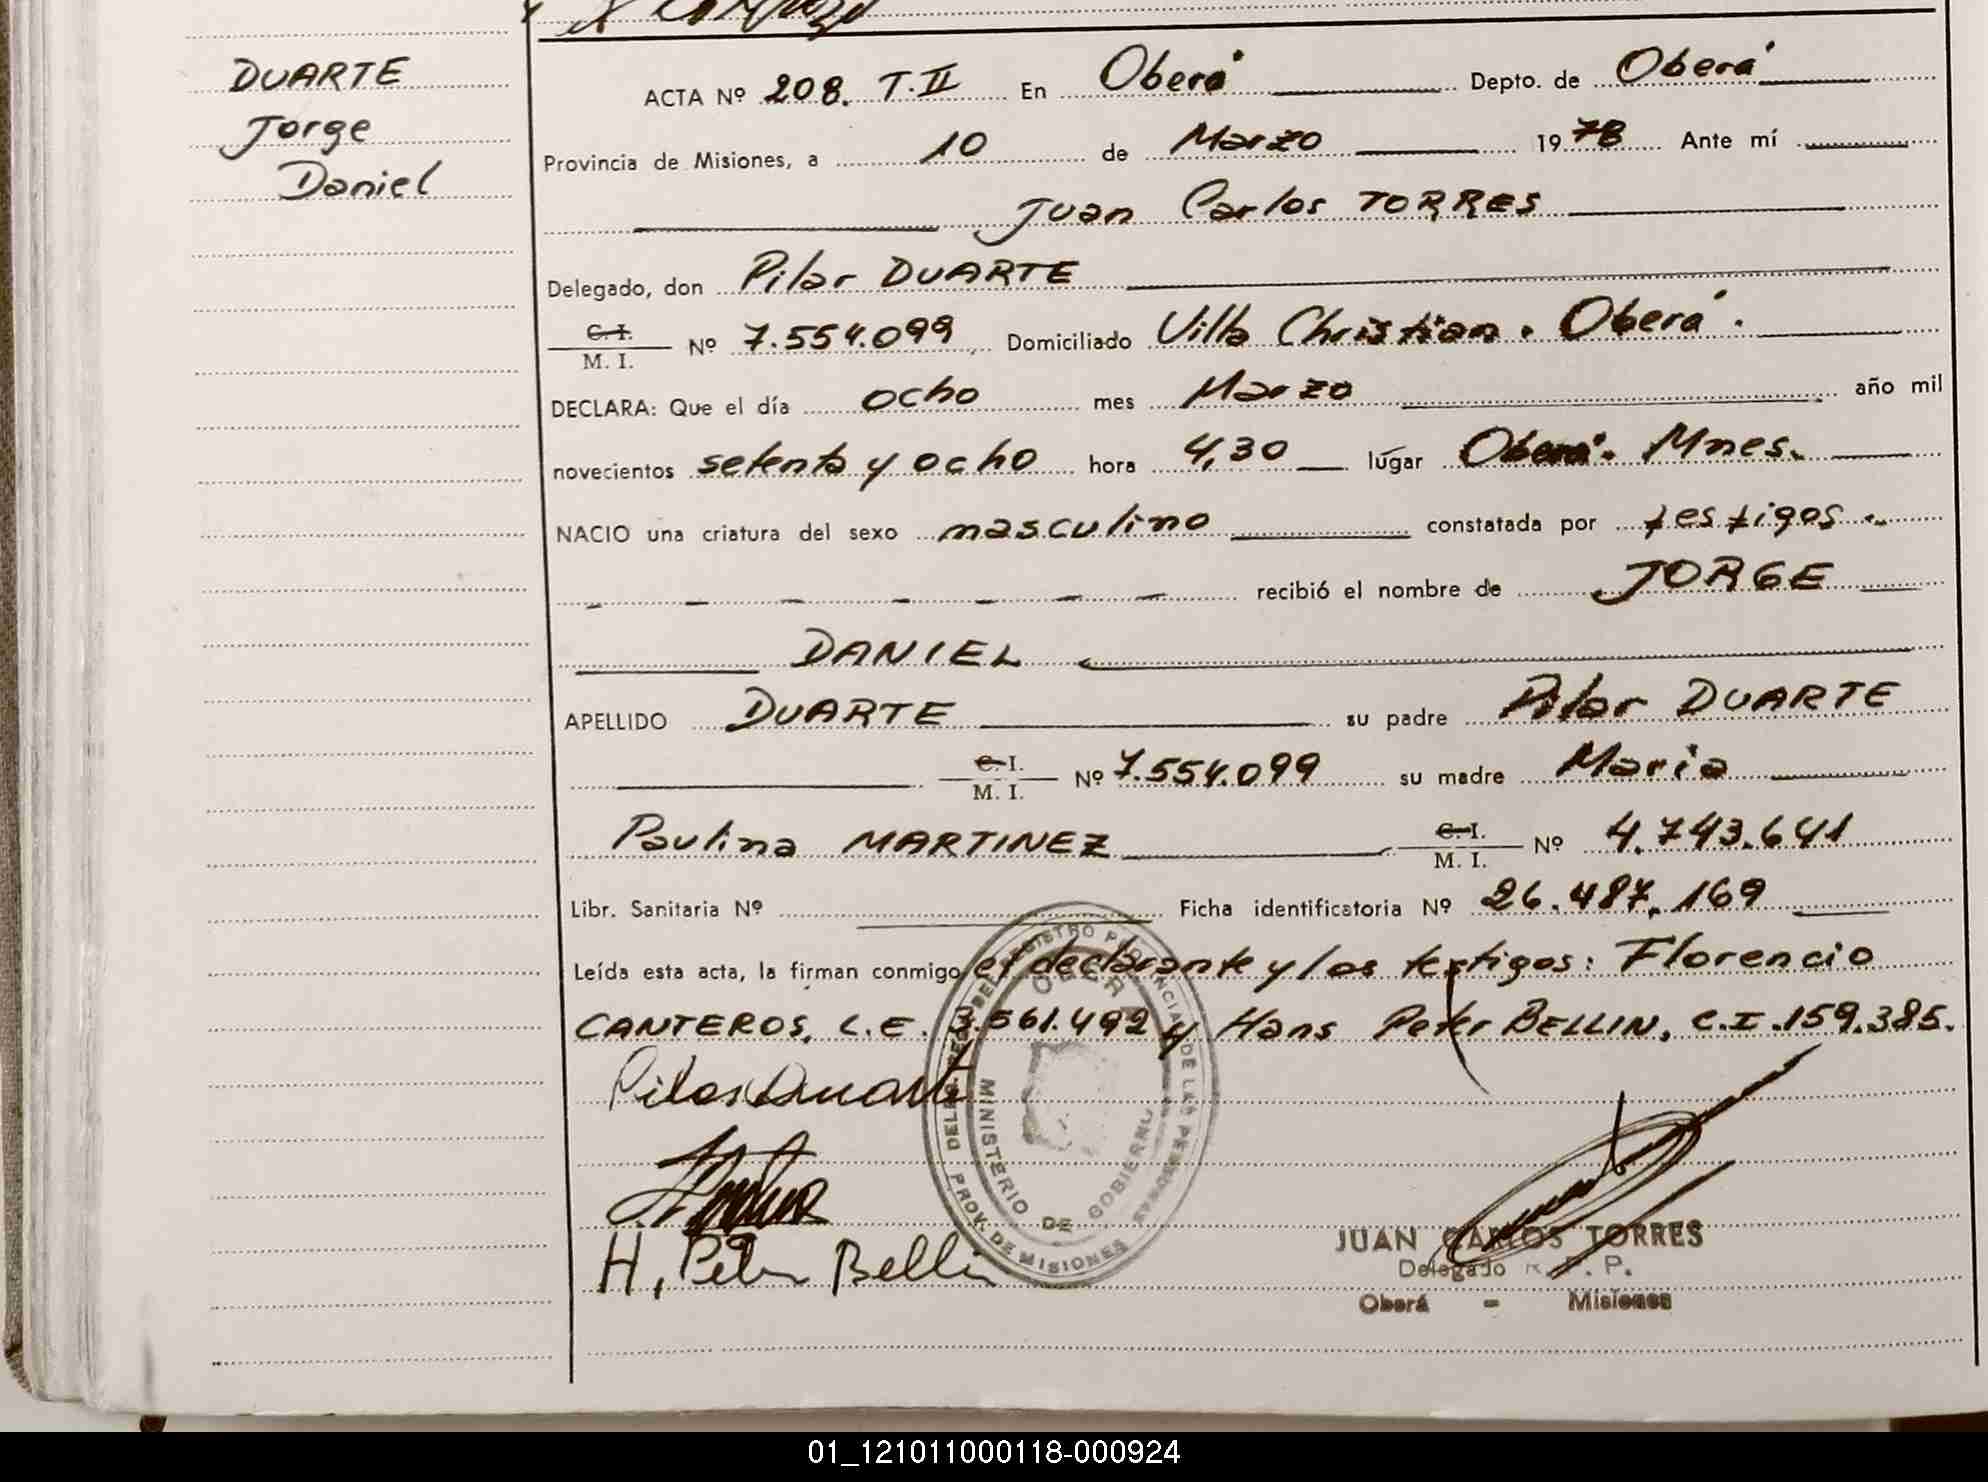 DUARTE
Jorge
Daniel
ACTA Nº 208. T.II En Oberá Depto. de Oberá
Provincia de Misiones, a 10 de Marzo 1978 Ante mí
Juan Carlos TORRES
Delegado, don Pilar DUARTE
C. I.
M. I. Nº 7.554.099 Domiciliado Villa Christian. Oberá.
DECLARA: Que el día ocho mes Marzo año mil
novecientos setenta y ocho hora 4,30 lúgar Oberá. Mnes.
NACIO una criatura del sexo masculino constatada por testigos.
recibió el nombre de JORGE
DANIEL
APELLIDO DUARTE su padre Pilar DUARTE
C. I.
M. I. Nº 7.554.099 su madre Maria
Paulina MARTINEZ C. I.
M. I. Nº 4.743.641
Libr. Sanitaria Nº Ficha identificatoria Nº 26.487.169
Leída esta acta, la firman conmigo el declarante y los testigos: Florencio
CANTEROS, L.E. 3.561.492 y Hans Peter BELLIN, C.I. 159.385.
Pilar Duarte
H. Peter Bellin
MINISTERIO DE GOBIERNO
PROV. DE MISIONES
JUAN CARLOS TORRES
Delegado R. P.
Oberá - Misiones
01_121011000118-000924